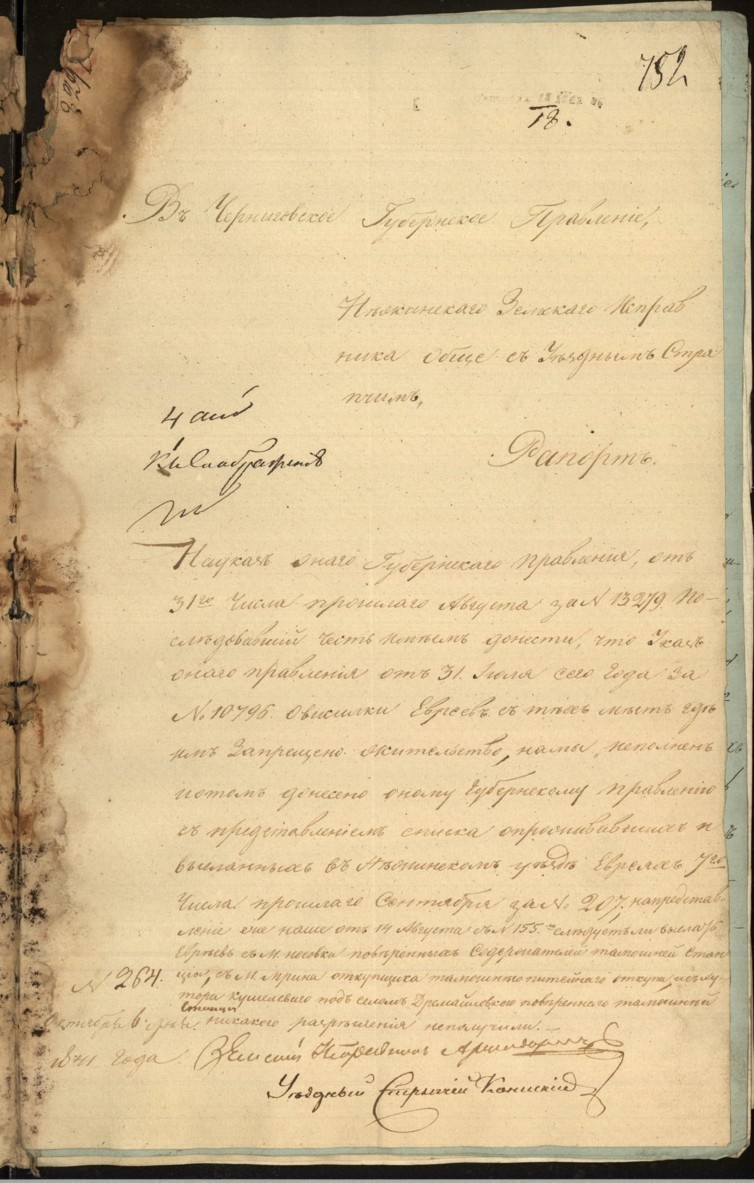 152
18.
Въ Черниговское Губернское Правленіе,
Нѣжинскаго Земскаго Исправ
ника обще съ Уѣзднымъ Стря
пчимъ,
Рапортъ.
На указъ онаго Губернскаго правленія, отъ
31го числа прошлаго Августа за N 13279. По-
слѣдовавшій честь имѣемъ донести, что Указъ
онаго правленія отъ 31. Іюля сего Года За
No. 10795. о висилки Евреевъ съ тѣхъ мѣстъ гдѣ
имъ Запрещено жительство, нами исполненъ
и о томъ донесено оному Губернскому правленію
съ представленіемъ списка о проживавшихъ и
высланныхъ въ Нѣжинскомъ уѣздѣ Евреяхъ 7го
Числа прошлаго Сентября за No. 207, на представ-
леніе же наше отъ 14 Августа съ N 155. слѣдуетъ ли высылать
Евреевъ съ М. Носовка повѣренныхъ Содержателя тамошней Стан
ціи, съ М. Мрина откупщика тамошнего питейнаго откупа, и съ ху
тора подъ селомъ Дремайловкою повѣренного тамошней
Станціи никакого разрѣшенія неполучили. —
N 264.
Октября 6 дня
1841 года.
Земскій Исправникъ
Уѣздный Стряпчій